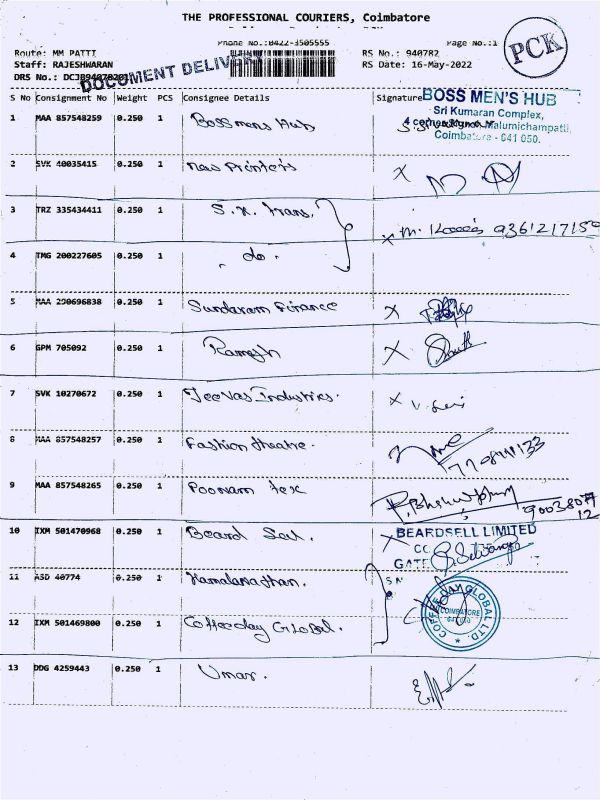 THE PROFESSIONAL COURIERS, Coimbatore
Phone No.:0422-3505555 Page No.:1
PCK
Route: MM PATTI RS No.: 940782
Staff: RAJESHWARAN RS Date: 16-May-2022
DRS No.:
DOCUMENT DELIVERY
S No Consignment No Weight PCS Consignee Details Signature
BOSS MEN'S HUB
Sri Kumaran Complex,
Malumichampatti,
Coimbatore - 641 050.
1 MAA 857548259 0.250 1 Boss mens Hub
2 SVK 40035415 0.250 1 New Printers X
3 TRZ 335434411 0.250 1 S.K. Trans. X M. 9361217150
4 TMG 200227605 0.250 1 - do -
5 MAA 290696838 0.250 1 Sundaram Finance X
6 GPM 705092 0.250 1 Ramesh X
7 SVK 10270672 0.250 1 Jeevas Industries. X
8 MAA 857548257 0.250 1 Fashion theatre.
9 MAA 857548265 0.250 1 Poonam tex
10 IXM 501470968 0.250 1 Beard Sel. X
BEARDSELL LIMITED
GATE
11 ASD 40774 0.250 1 Kamalanathan.
12 IXM 501469800 0.250 1 Coffeeday Global.
COFFEE DAY GLOBAL LTD
COIMBATORE
641 050
13 DDG 4259443 0.250 1 Umar.